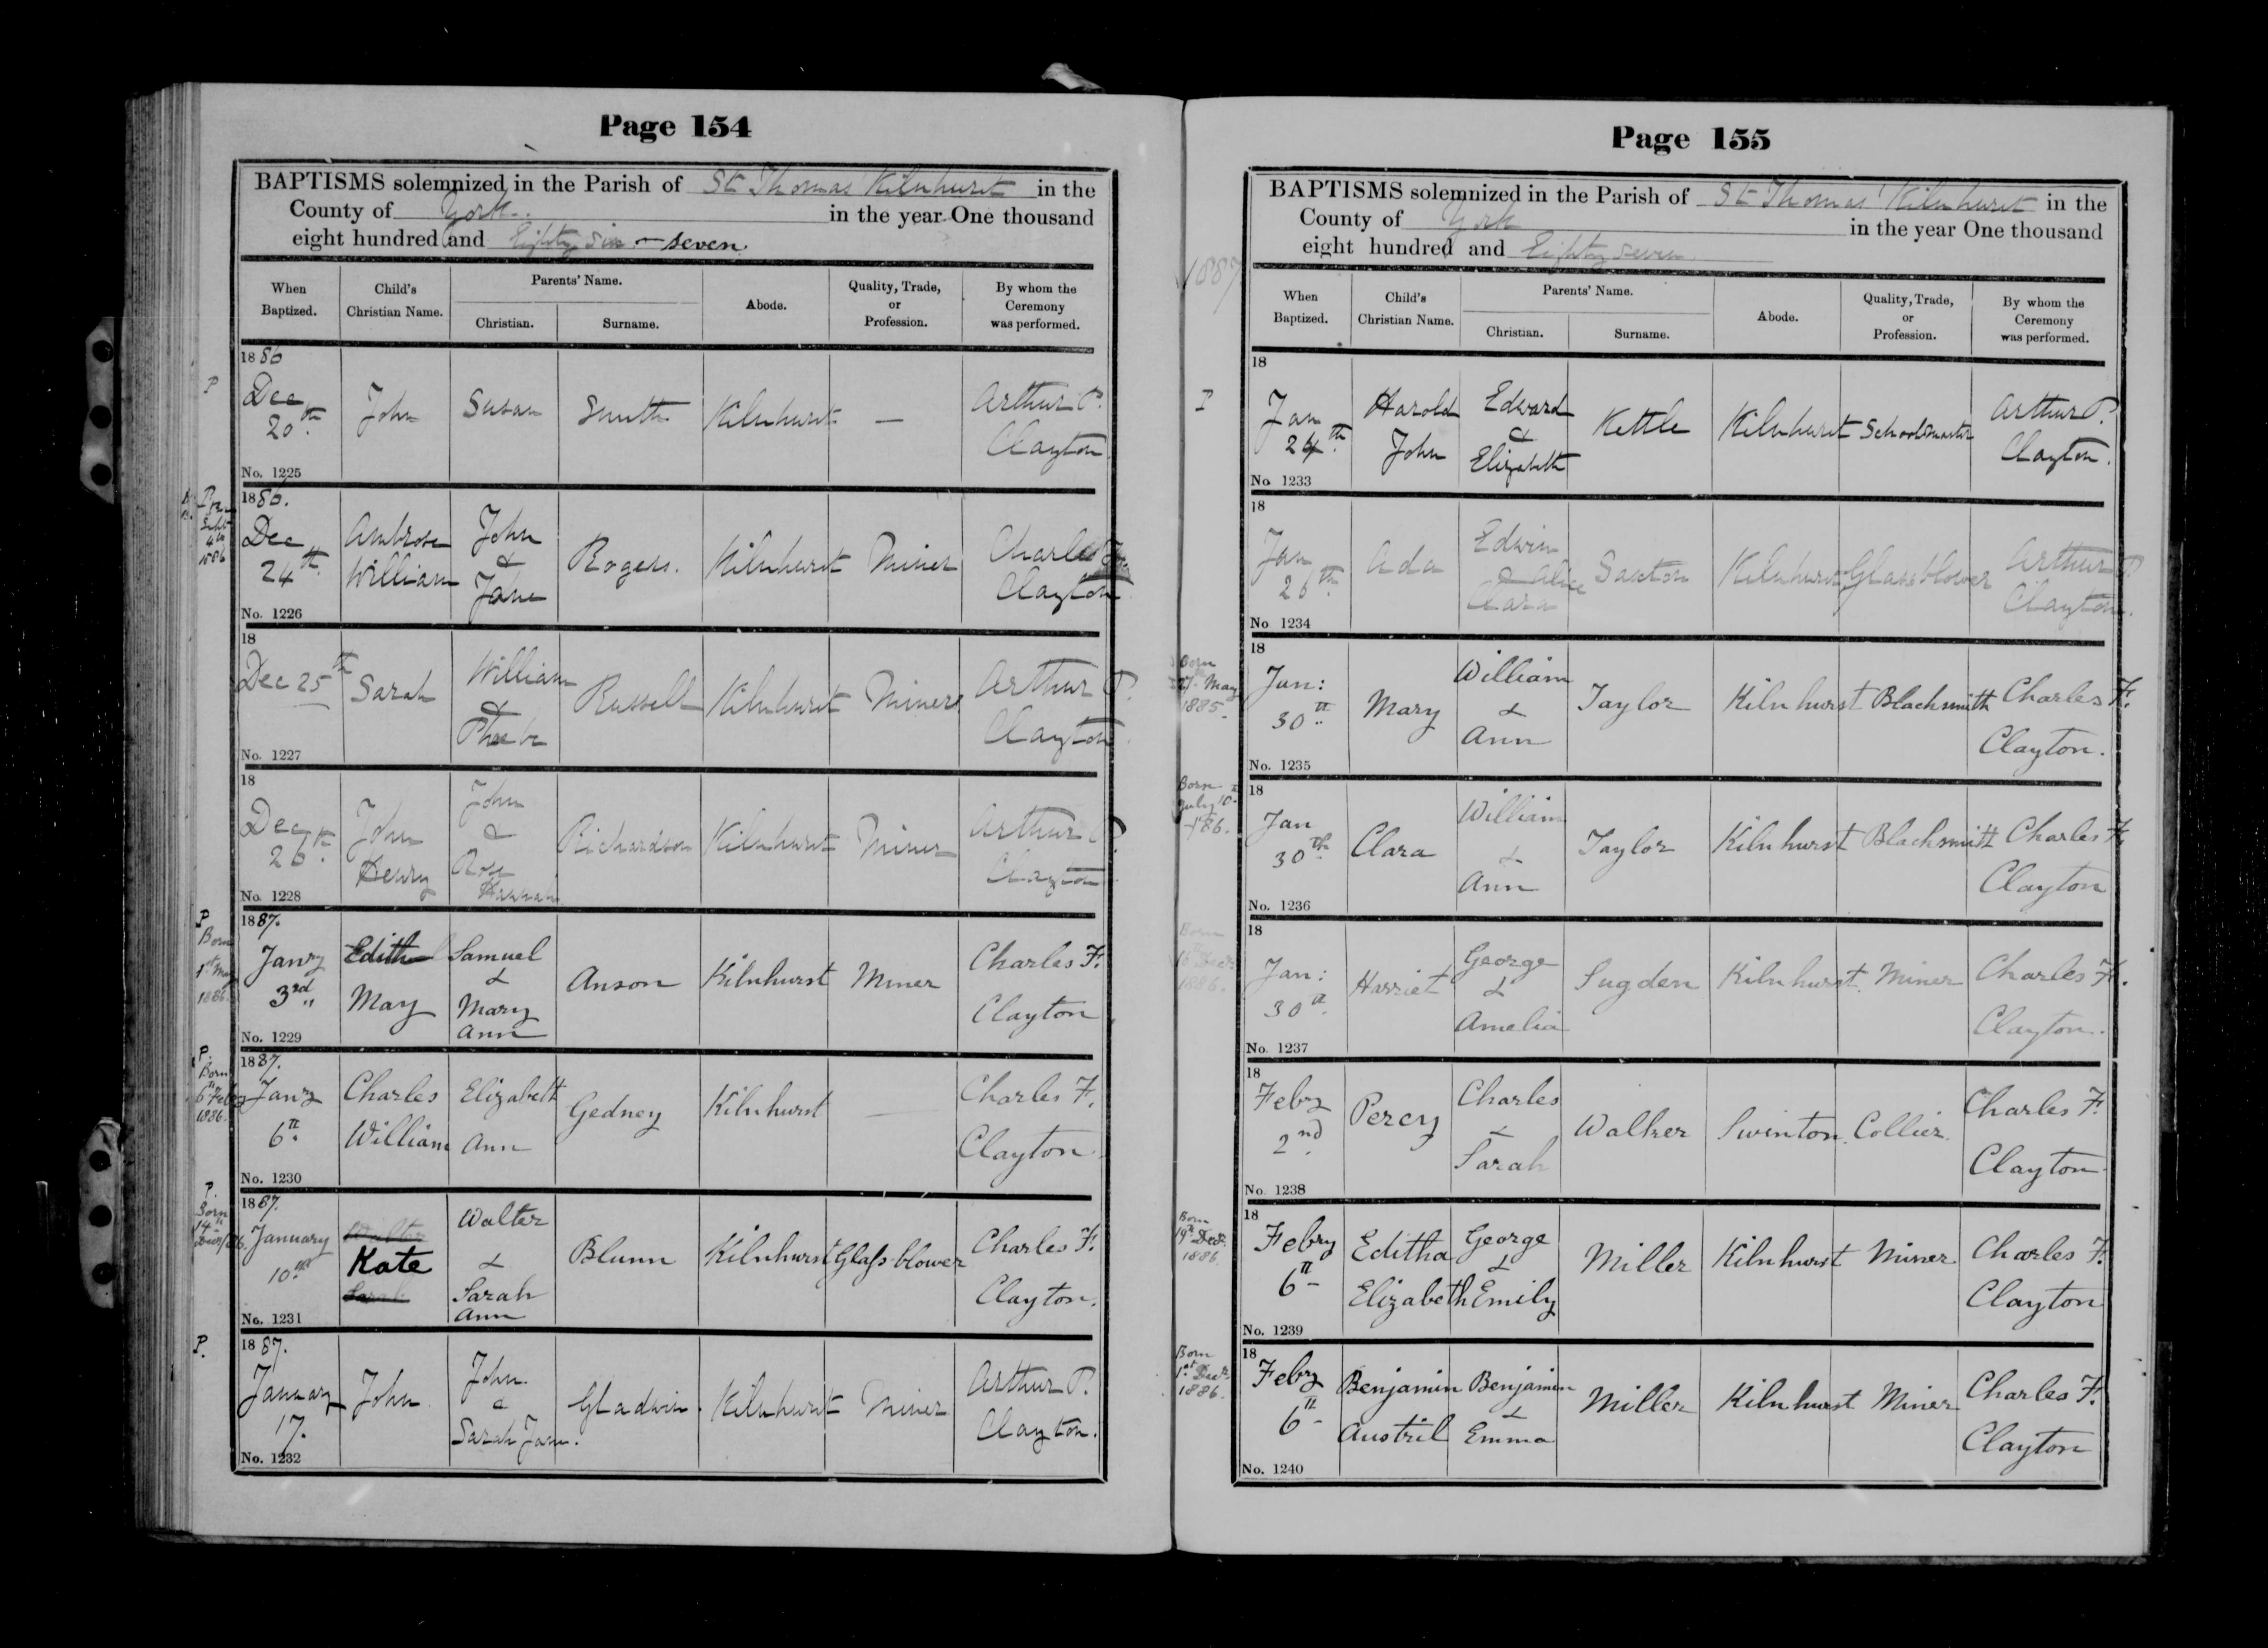 Page 154
BAPTISMS solemnized in the Parish of St Thomas' Kilnhurst in the
County of York. in the year One thousand
eight hundred and Eighty Six - seven.
When Baptized.
Child's Christian Name.
Parents' Name.
Christian.
Surname.
Abode.
Quality, Trade, or Profession.
By whom the Ceremony was performed.
P
1886
Dec 20th John Susan Smith Kilnhurst — Arthur P. Clayton
No. 1225
Sept 4th 1886
1886.
Dec 24th Ambrose William John & Jane Rogers. Kilnhurst Miner Charles F. Clayton
No. 1226
18
Dec 25th Sarah William & Phoebe Russell Kilnhurst Miner Arthur P. Clayton
No. 1227
18
Dec 26th John Henry John & Rose Hannah Richardson Kilnhurst Miner Arthur P. Clayton
No. 1228
P
Born 1st May 1886.
1887.
Janry 3rd Edith May Samuel & Mary Ann Anson Kilnhurst Miner Charles F. Clayton
No. 1229
P.
Born 6th Feby 1886.
1887.
Janry 6th Charles William Elizabeth Ann Gedney Kilnhurst — Charles F. Clayton
No. 1230
P.
Born 14th
1887.
January 10th Walter Kate Sarah Walter & Sarah Ann Blunn Kilnhurst Glass blower Charles F. Clayton.
No. 1231
P.
1887.
January 17. John John & Sarah Jane. Gladwin. Kilnhurst Miner Arthur P. Clayton.
No. 1232
Page 155
BAPTISMS solemnized in the Parish of St Thomas' Kilnhurst in the
County of York in the year One thousand
eight hundred and Eighty seven
1887
When Baptized.
Child's Christian Name.
Parents' Name.
Christian.
Surname.
Abode.
Quality, Trade, or Profession.
By whom the Ceremony was performed.
18
Jan 24th Harold John Edward & Elizabeth Kettle Kilnhurst Schoolmaster Arthur P. Clayton.
No. 1233
18
Jan 26th Ada Edwin & Alice Clara Saxton Kilnhurst Glassblower Arthur P. Clayton.
No 1234
Born May 1885.
18
Jan: 30th Mary William & Ann Taylor Kilnhurst Blacksmith Charles F. Clayton.
No. 1235
Born July 10th 186.
18
Jan 30th Clara William & Ann Taylor Kilnhurst Blacksmith Charles F. Clayton
No. 1236
Born 16th Decr 1886.
18
Jan: 30th Harriet George & Amelia Sugden Kilnhurst. Miner Charles F. Clayton.
No. 1237
18
Febry 2nd Percy Charles & Sarah Walker Swinton. Collier. Charles F. Clayton
No. 1238
Born 19th Decr 1886.
18
Febry 6th Editha Elizabeth George & Emily Miller Kilnhurst Miner Charles F. Clayton
No. 1239
Born 1st Decr 1886.
18
Febry 6th Benjamin Austril Benjamin & Emma Miller Kilnhurst Miner Charles F. Clayton
No. 1240